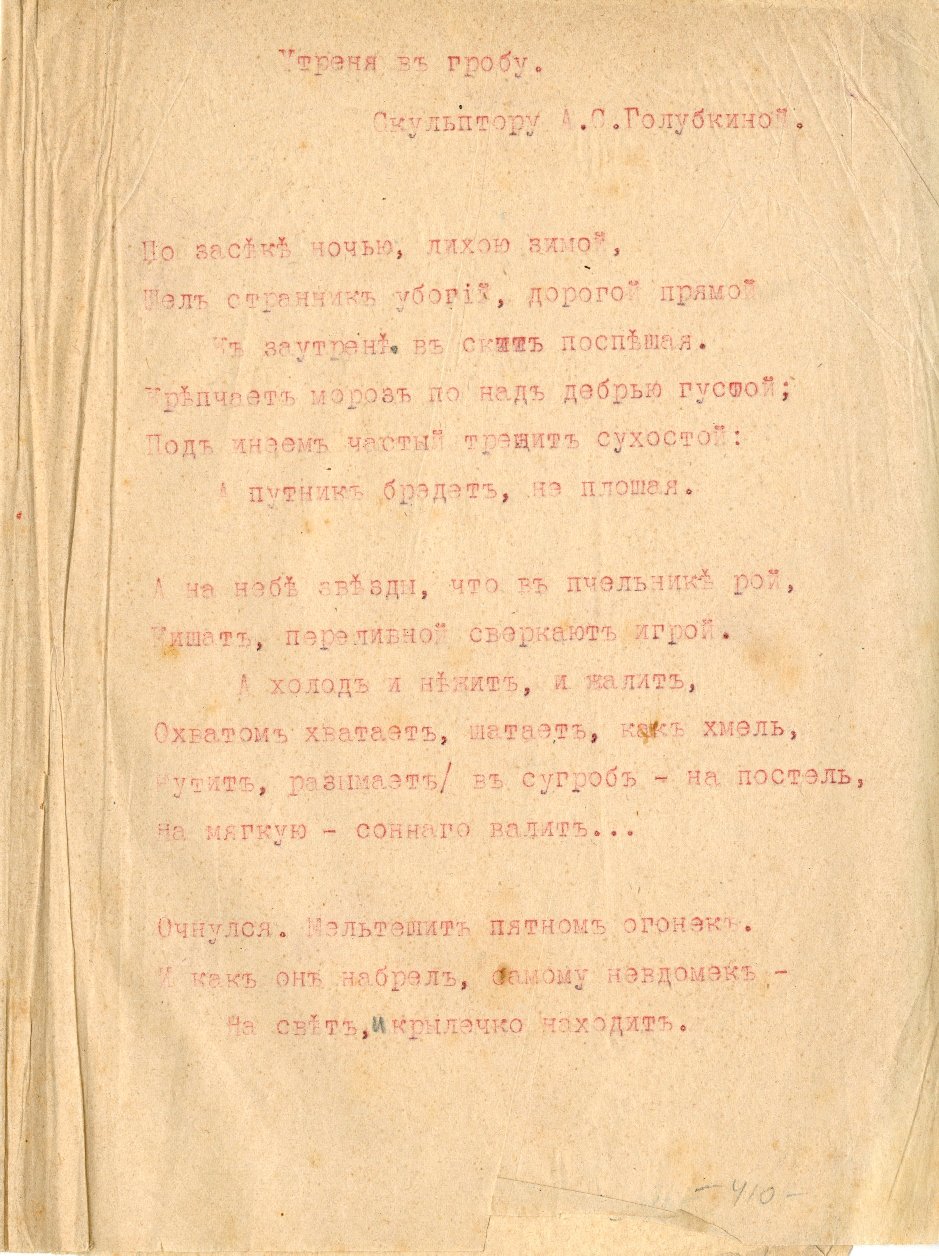 Утреня въ гробу.
Скульптору А.С.Голубкиной.
По засѣкѣ ночью, лихою зимой,
Шелъ странникъ убогій, дорогой прямой
Къ заутренѣ въ скитъ поспѣшая.
Крѣпчаетъ морозъ по надъ дебрью густой;
Подъ инеемъ частый трещитъ сухостой:
А путникъ бредетъ, не плошая.
А на небѣ звѣзды, что въ пчельникѣ рой,
Кишатъ, переливной сверкаютъ игрой.
А холодъ и нѣжитъ, и жалитъ,
Охватомъ хватаетъ, шатаетъ, какъ хмель,
Мутитъ, разымаетъ/ въ сугробъ - на постель,
На мягкую - соннаго валитъ...
Очнулся. Мельтешитъ пятномъ огонекъ.
И какъ онъ набрелъ, самому невдомекъ -
На свѣтъ, и крылечко находитъ.
- 410 -